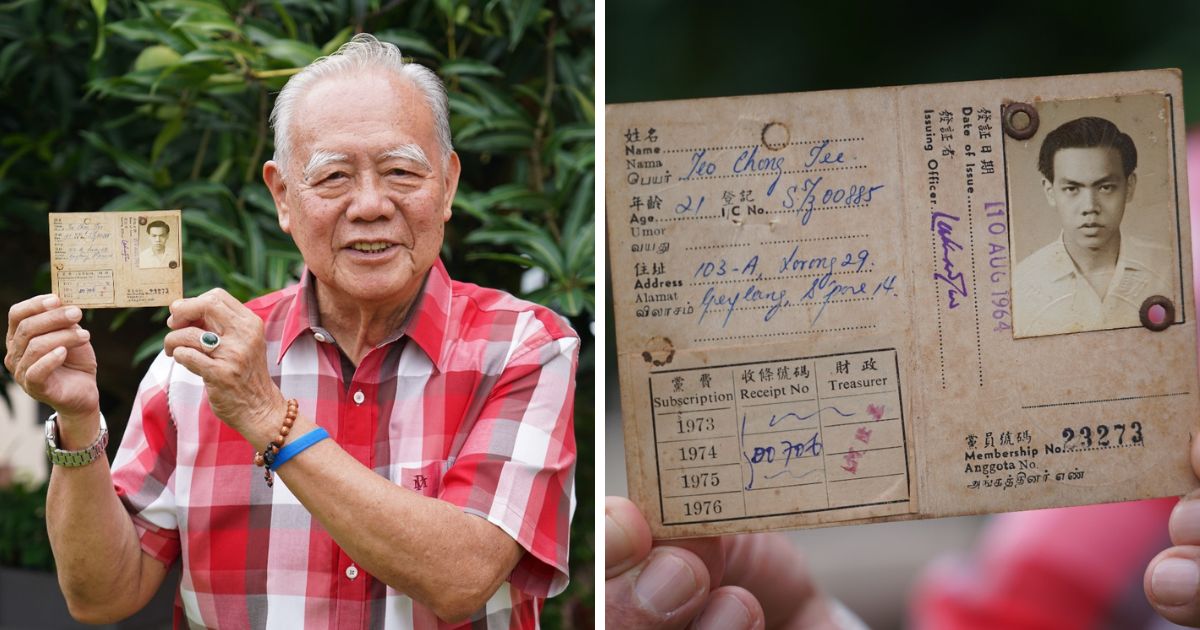 姓名
Name
Nama Teo Chong Tee.
பெயர்
年齡 21 登記 S7/00885
Age I/C No.
Umor
வயது
住址 103-A, Lorong 29.
Address
Alamat Geylang, S'pore 14.
விலாசம்
黨費 收條號碼 財政
Subscription Receipt No Treasurer
1973
1974 00706
1975
1976
發証日期
Date of Issue 10 AUG 1964
發証者
Issuing Officer
黨員號碼
Membership No. 23273
Anggota No.
அங்கத்தினர் எண்